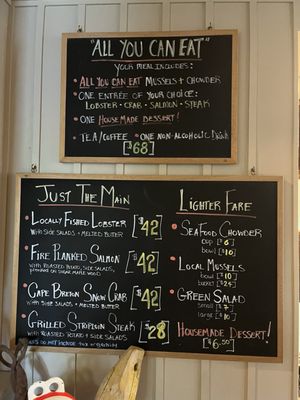 "ALL YOU CAN EAT"
YOUR MEAL INCLUDES:
• ALL YOU CAN EAT MUSSELS + CHOWDER
• ONE ENTRÉE OF YOUR CHOICE:
LOBSTER • CRAB • SALMON • STEAK
• ONE HOUSEMADE DESSERT!
• TEA/COFFEE • ONE NON-ALCOHOLIC DRINK
[$68]
JUST THE MAIN
• LOCALLY FISHED LOBSTER [$42]
WITH SIDE SALADS + MELTED BUTTER
• FIRE PLANKED SALMON [$42]
WITH ROASTED POTATO, SIDE SALADS,
PLANKED ON SUGAR MAPLE WOOD
• CAPE BRETON SNOW CRAB [$42]
WITH SIDE SALADS + MELTED BUTTER
• GRILLED STRIPLOIN STEAK [$28]
WITH ROASTED POTATO + SIDE SALADS
DO NOT INCLUDE TAX OR GRATUITY
LIGHTER FARE
• SEAFOOD CHOWDER
cup [$6]
bowl [$10]
• LOCAL MUSSELS
bowl [$10]
bucket [$24]
• GREEN SALAD
small [$7]
large [$10]
HOUSEMADE DESSERT!
[$6.50]